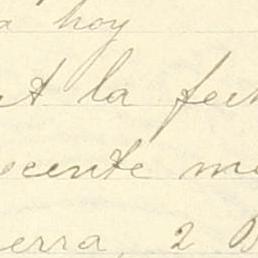 a hoy
t la fech
ecente me
erra, 2 D